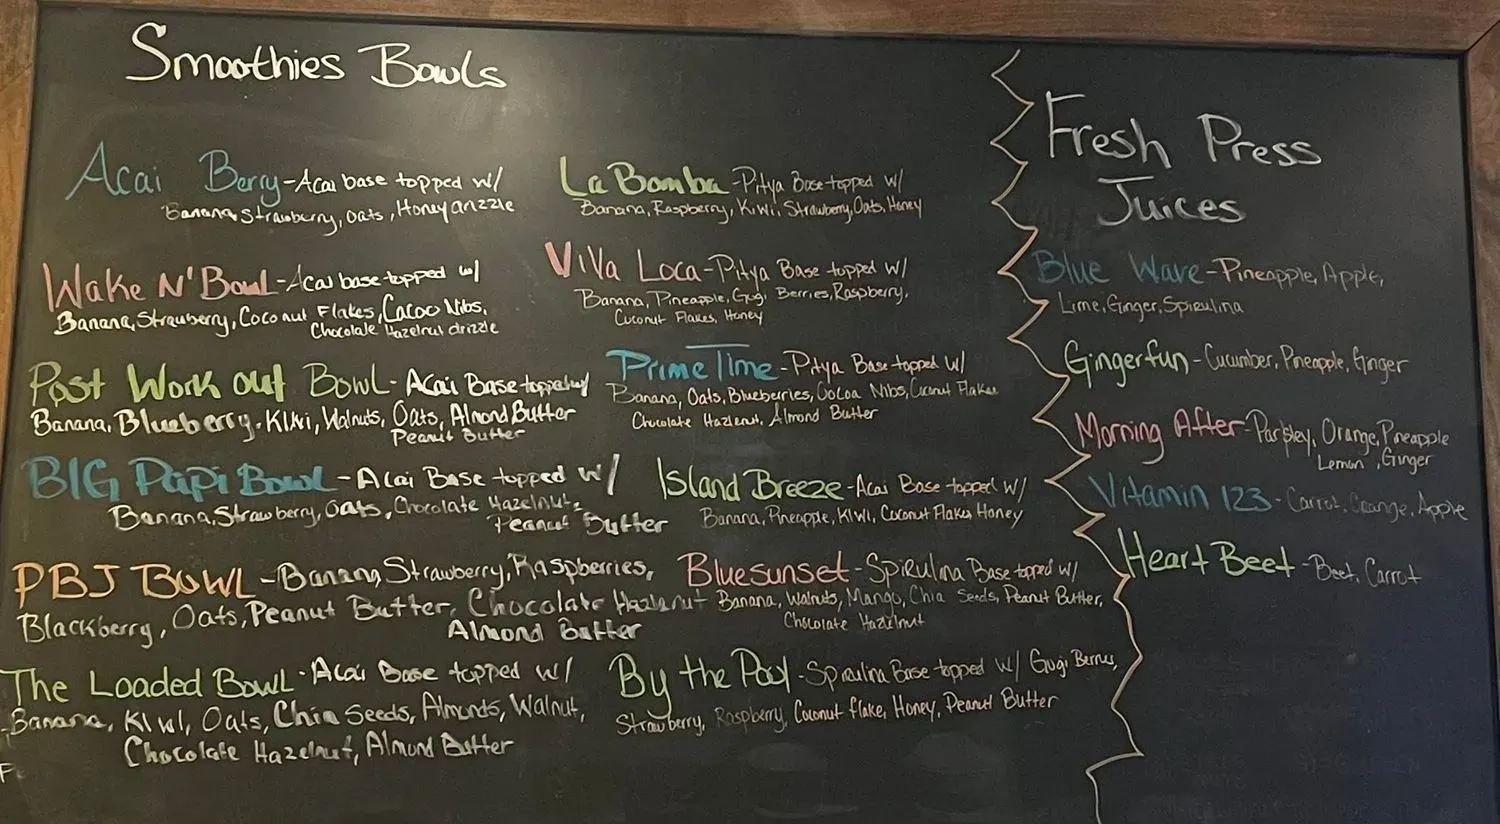 Smoothies Bowls
Acai Berry - Acai base topped w/
Banana, Strawberry, Oats, Honey drizzle
Wake N' Bowl - Acai base topped w/
Banana, Strawberry, Coconut Flakes, Cacao Nibs,
Chocolate Hazelnut drizzle
Post Work out Bowl - Acai Base topped w/
Banana, Blueberry, Kiwi, Walnuts, Oats, Almond Butter
Peanut Butter
BIG Papi Bowl - Acai Base topped w/
Banana, Strawberry, Oats, Chocolate Hazelnut,
Peanut Butter
PBJ BOWL - Banana, Strawberry, Raspberries,
Blackberry, Oats, Peanut Butter, Chocolate Hazlenut
Almond Butter
The Loaded Bowl - Acai Base topped w/
Banana, Kiwi, Oats, Chia Seeds, Almonds, Walnut,
Chocolate Hazelnut, Almond Butter
La Bomba - Pitya Base topped w/
Banana, Raspberry, Kiwi, Strawberry, Oats, Honey
ViVa Loca - Pitya Base topped w/
Banana, Pineapple, Gugi Berries, Raspberry,
Cuconut Flakes, Honey
Prime Time - Pitya Base topped w/
Banana, Oats, Blueberries, Cocoa Nibs, Coconut Flakes
Chocolate Hazlenut, Almond Butter
Island Breeze - Acai Base topped w/
Banana, Pineapple, Kiwi, Coconut Flakes Honey
Bluesunset - Spirulina Base topped w/
Banana, Walnuts, Mango, Chia Seeds, Peanut Butter,
Chocolate Hazelnut
By the Pool - Spirulina Base topped w/ Gugi Berries,
Strawberry, Raspberry, Coconut flake, Honey, Peanut Butter
Fresh Press
Juices
Blue Wave - Pineapple, Apple,
Lime, Ginger, Spirulina
Gingerfun - Cucumber, Pineapple, Ginger
Morning After - Parsley, Orange, Pineapple
Lemon, Ginger
Vitamin 123 - Carrot, Orange, Apple
Heart Beet - Beet, Carrot